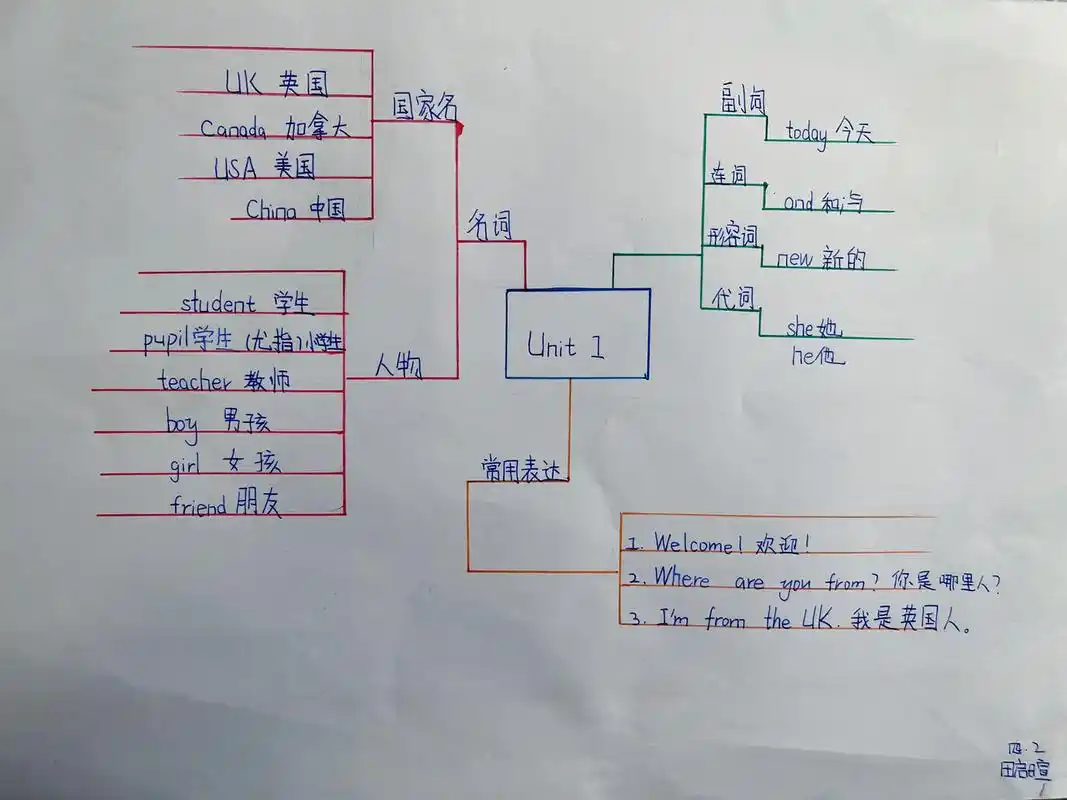 国家名
UK 英国
Canada 加拿大
USA 美国
China 中国
名词
人物
student 学生
pupil学生(尤指)小学生
teacher 教师
boy 男孩
girl 女孩
friend 朋友
Unit 1
副词
today 今天
连词
and 和;与
形容词
new 新的
代词
she 她
he 他
常用表达
1. Welcome! 欢迎!
2. Where are you from? 你是哪里人?
3. I'm from the UK. 我是英国人。
四.2